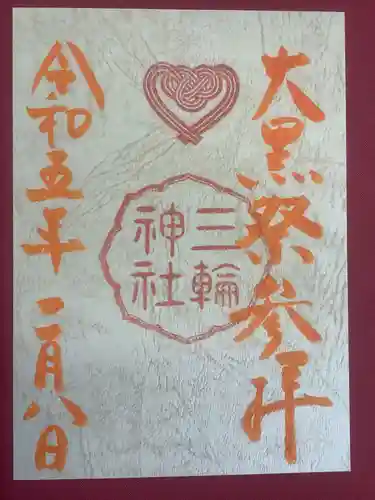 大黒祭参拝
三輪
神社
令和五年 二月八日